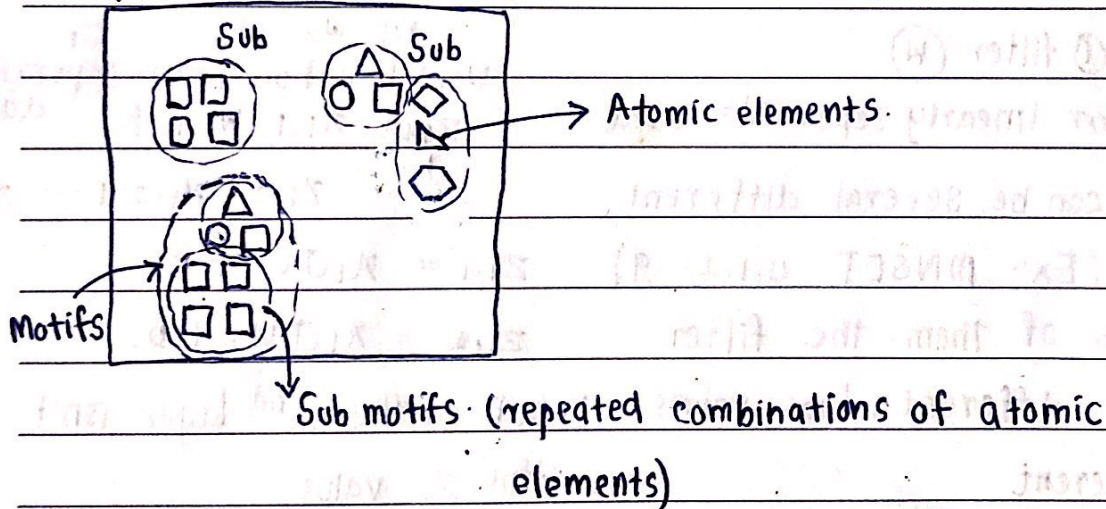 Sub
Sub
Atomic elements.
Motifs
Sub motifs. (repeated combinations of atomic
elements)